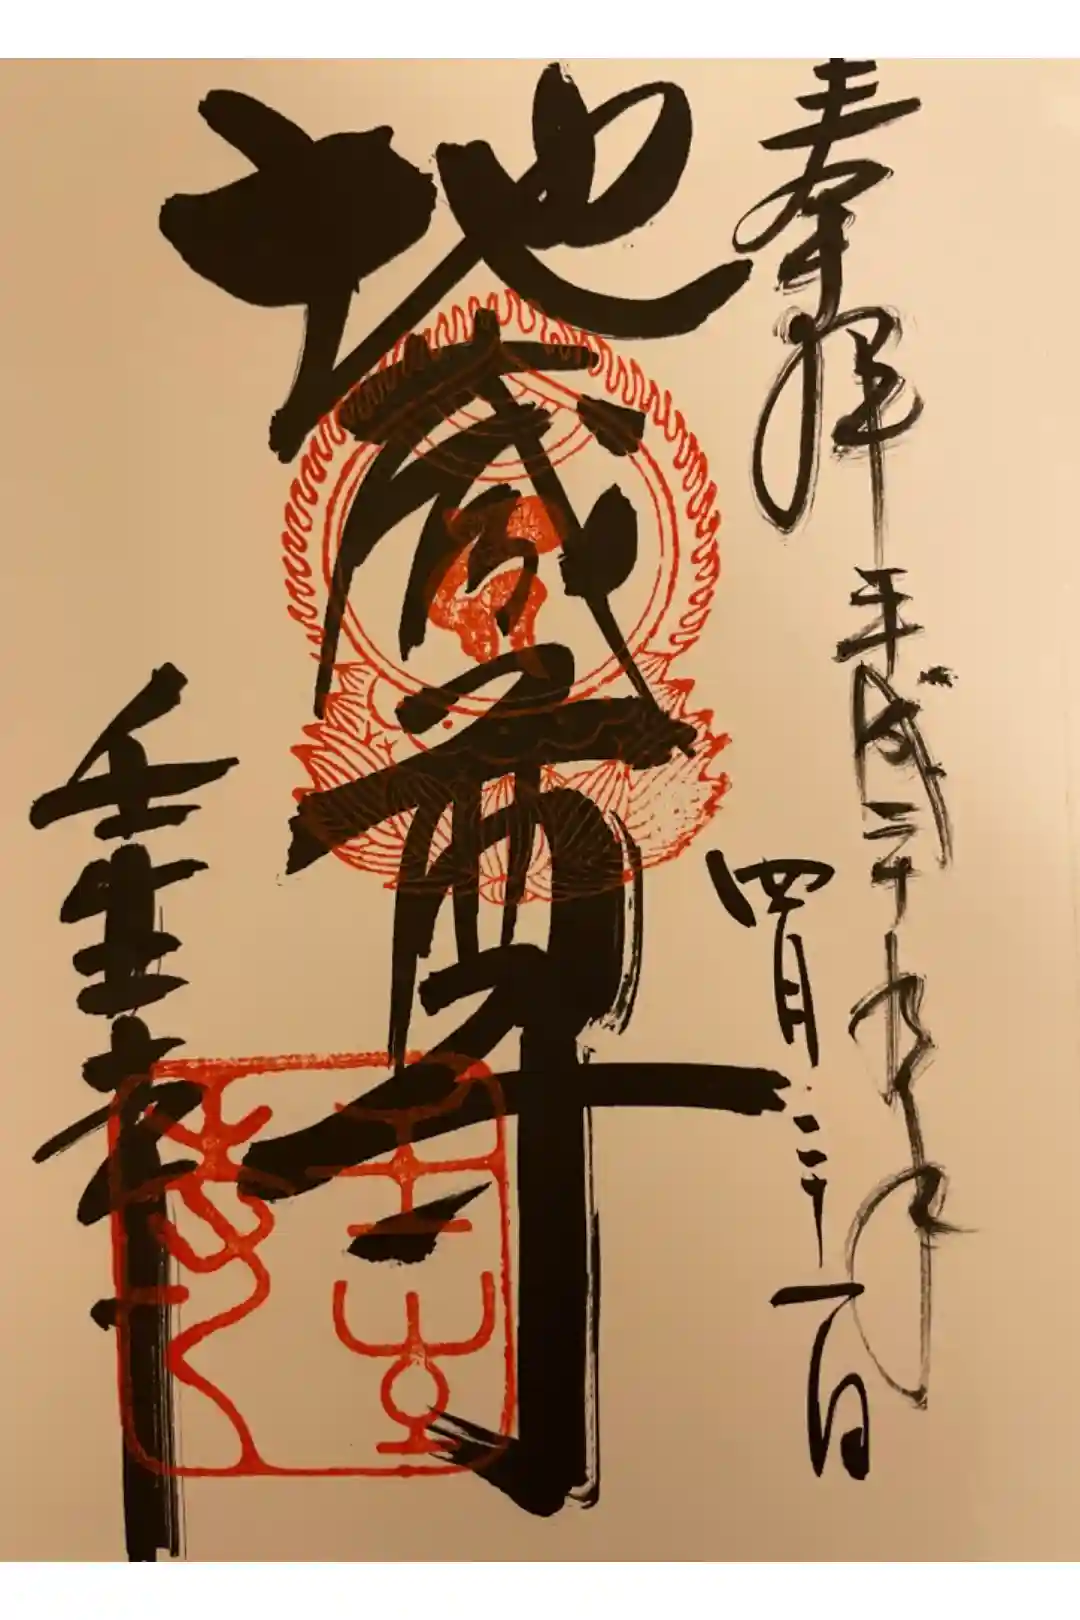 奉拝 平成二十年
四月二十一日
地蔵尊
壬生寺